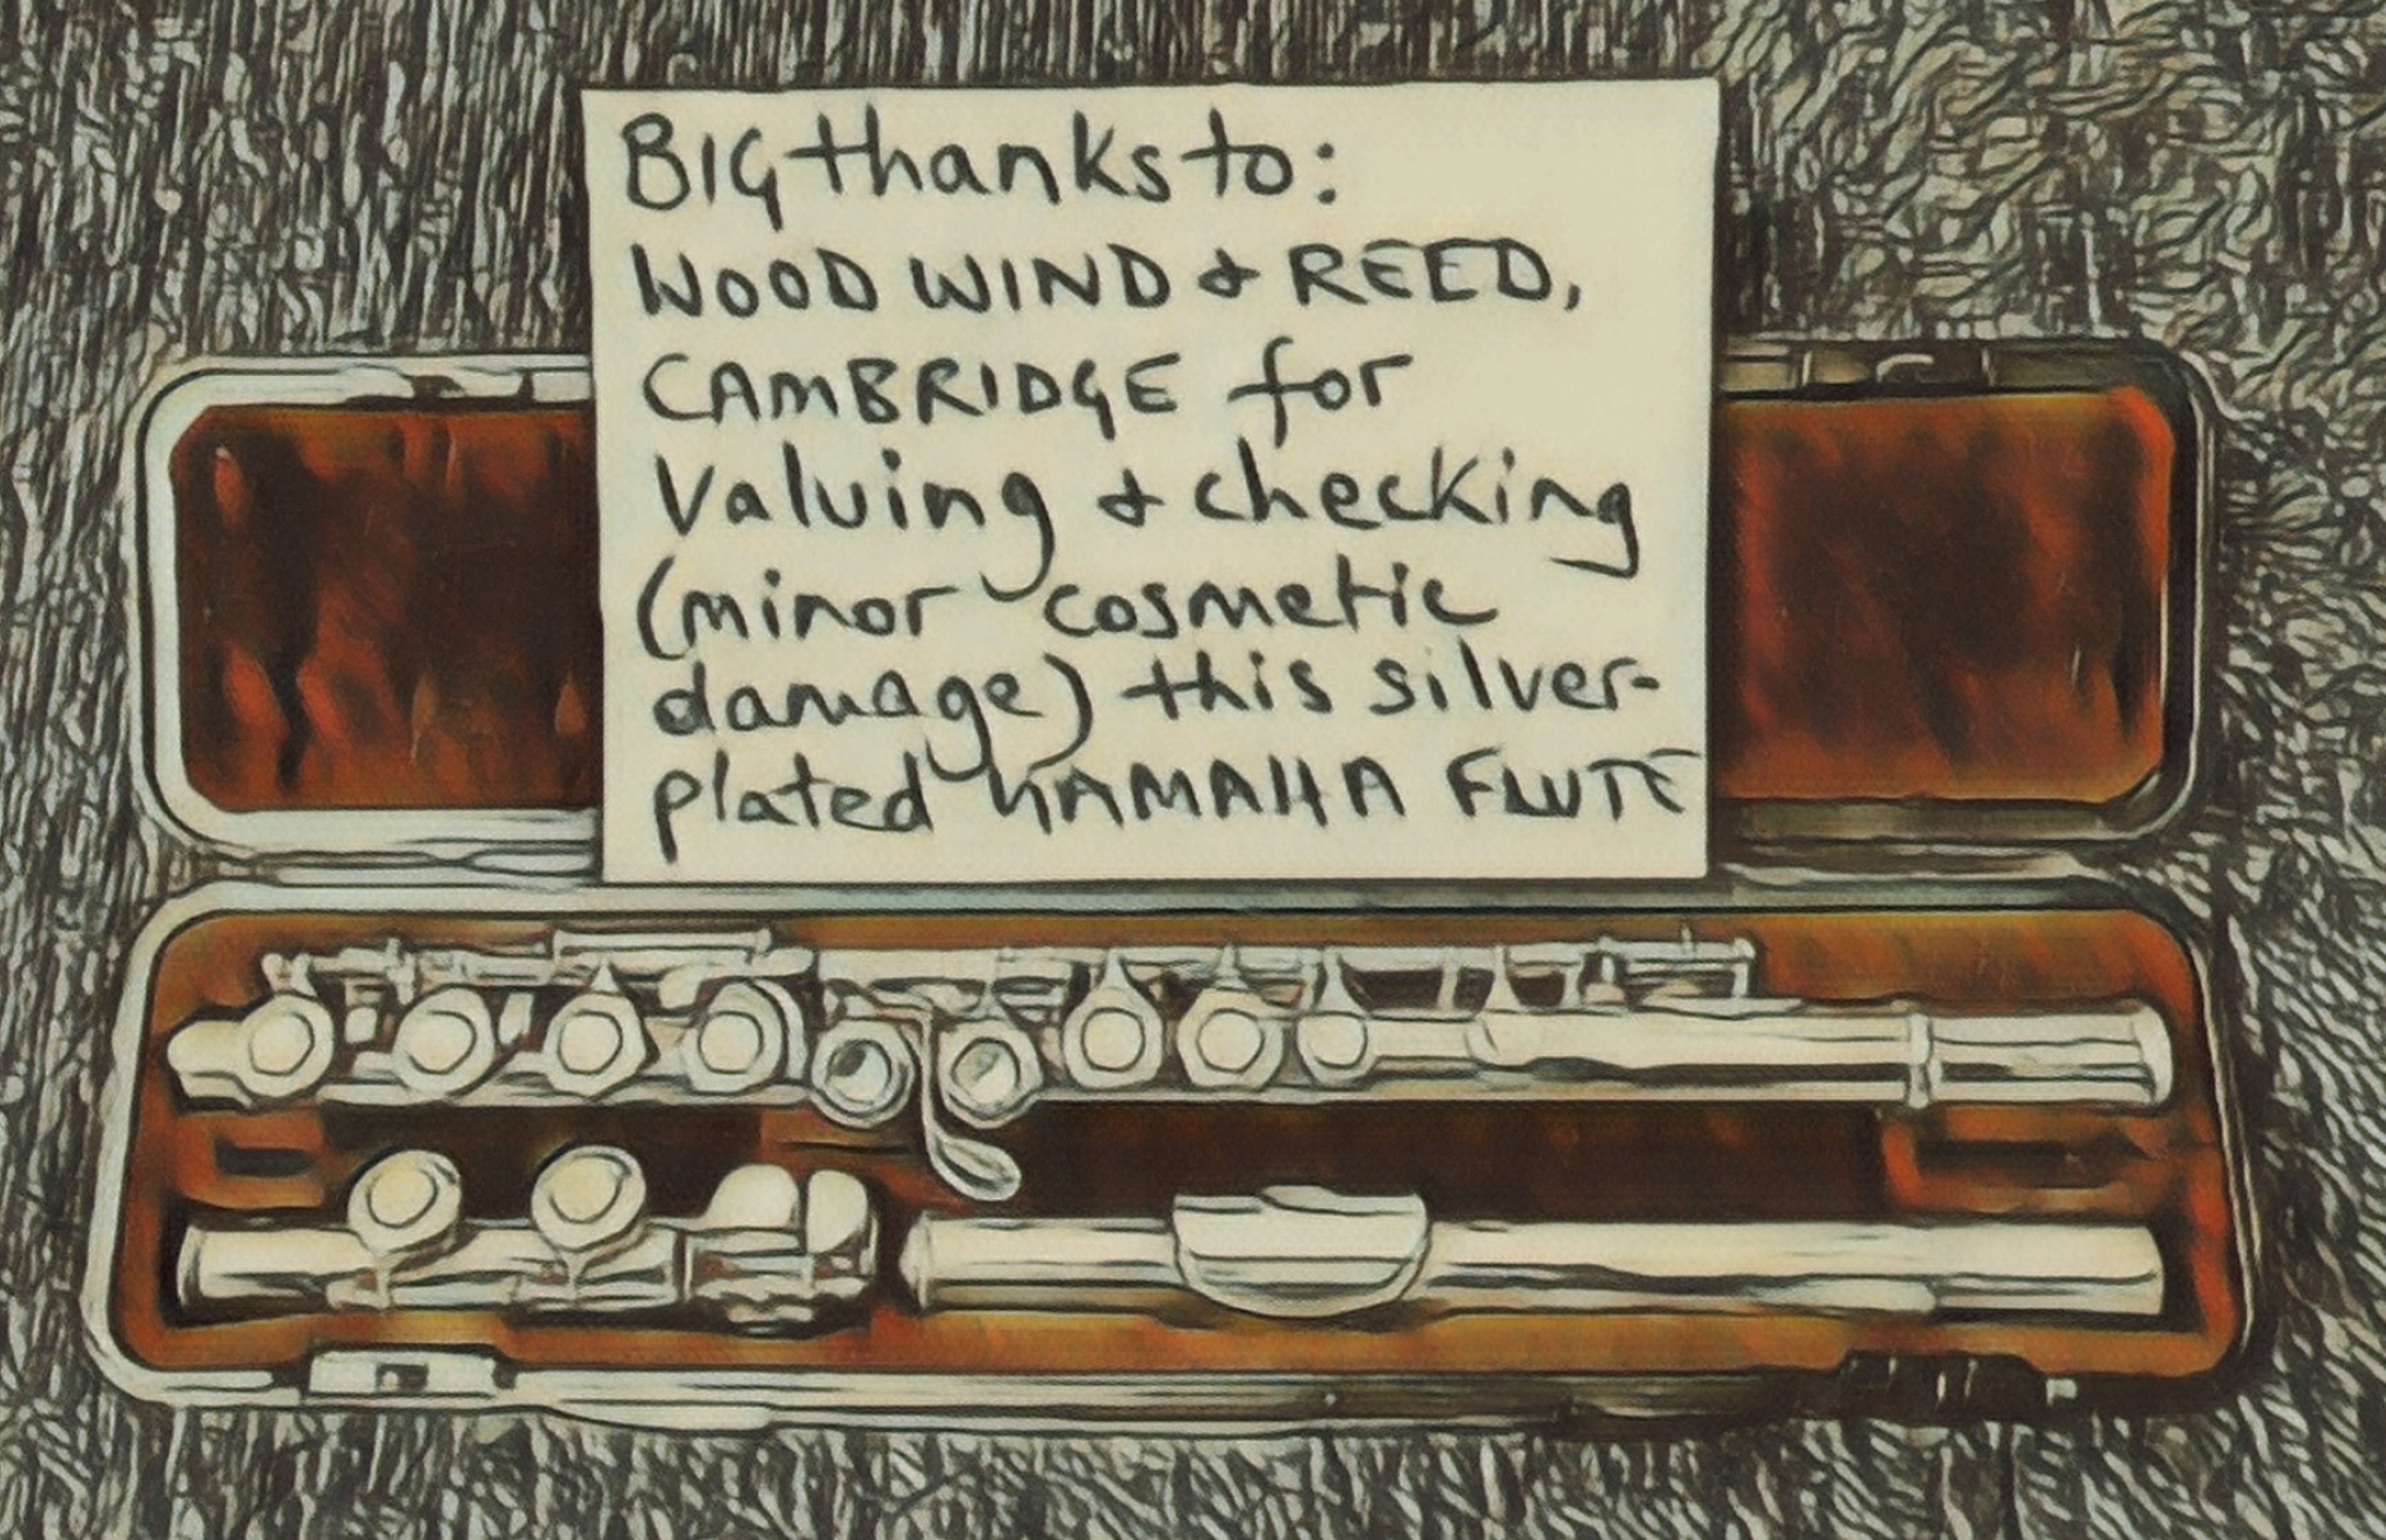 BIG thanks to:
WOODWIND & REED,
CAMBRIDGE for
Valuing & checking
(minor cosmetic
damage) this silver-
plated YAMAHA FLUTE